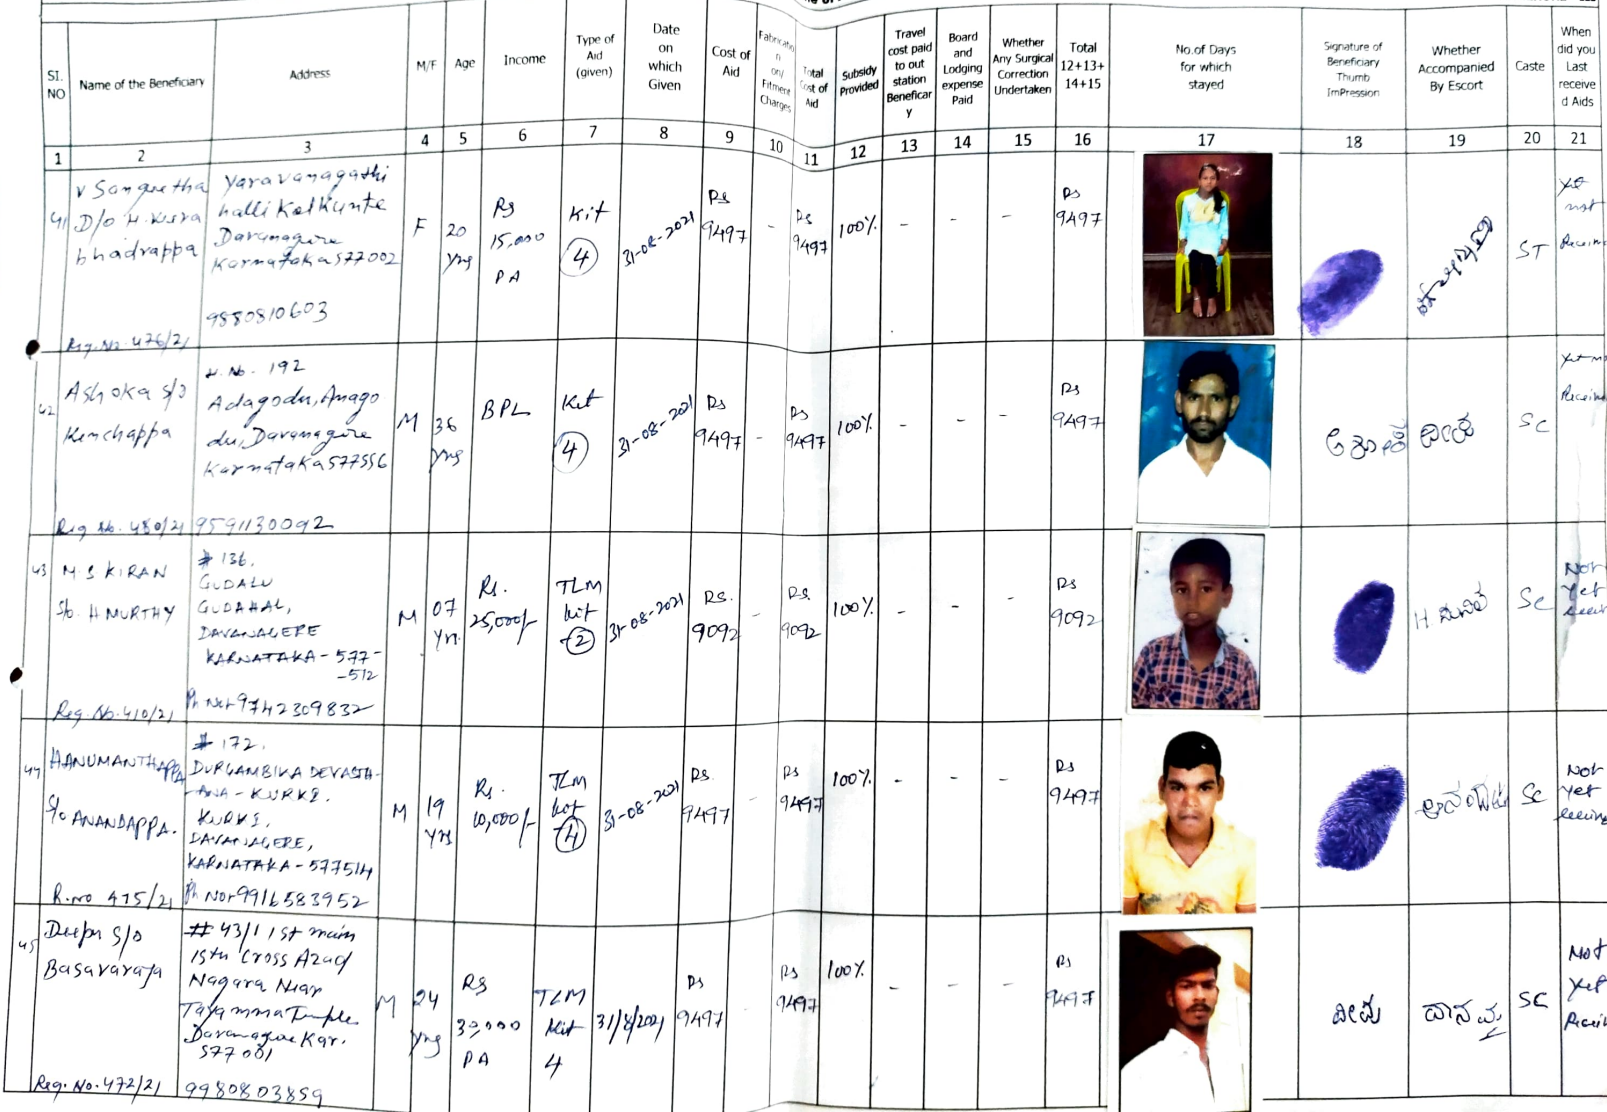 SI. NO
Name of the Beneficiary
Address
M/F
Age
Income
Type of Aid (given)
Date on which Given
Cost of Aid
Fabricatio n on/ Fitment Charges
Total Cost of Aid
Subsidy Provided
Travel cost paid to out station Beneficar y
Board and Lodging expense Paid
Whether Any Surgical Correction Undertaken
Total 12+13+ 14+15
No.of Days for which stayed
Signature of Beneficiary Thumb ImPression
Whether Accompanied By Escort
Caste
When did you Last receive d Aids
1 2 3 4 5 6 7 8 9 10 11 12 13 14 15 16 17 18 19 20 21
41
V Sangeetha
D/o H. Veera
bhadrappa
Reg. No. 476/21
Yaravanagathi
halli Kolkunte
Davanagire
Karnataka 577002
9880810603
F
20 yrs
Rs 15,000 PA
Kit 4
31-08-2021
Rs 9497
-
Rs 9497
100%
-
-
-
Rs 9497
ST
Yet not
42
Ashoka s/o
Kenchappa
Reg No. 480/21
H. No. 192
Adagodu, Anago
du, Davanagire
Karnataka 577556
9591130092
M
36 yrs
BPL
Kit 4
31-08-2021
Rs 9497
-
Rs 9497
100%
-
-
-
Rs 9497
ಅಶೋಕ
SC
43
M.S KIRAN
S/o. H MURTHY
Reg. No. 410/21
# 136.
GUDALU
GUDAHAL,
DAVANAGERE
KARNATAKA - 577-
-512
Ph No:- 9742309832
M
07 yrs
Rs. 25,000/-
TLM kit 2
31-08-2021
Rs. 9092
-
Rs. 9092
100%
-
-
-
Rs 9092
SC
Not Yet
44
HANUMANTHAPPA
S/o ANANDAPPA.
R.no 475/21
# 172.
DURGAMBIKA DEVASTH-
-ANA - KURKI.
KURKI,
DAVANAGERE,
KARNATAKA - 577514
Ph No:- 9916583952
M
19 yrs
Rs. 10,000/-
TLM kit 4
31-08-2021
Rs. 9497
-
Rs 9497
100%
-
-
-
Rs 9497
SC
Not yet
45
Deepu S/o
Basavaraja
Reg. No. 472/21
# 43/1 1st main
15th Cross Azad
Nagara Near
Tayamma Temple
Davanagire Kar.
577001
9980803859
M
24 yrs
Rs 30,000 PA
TLM Kit 4
31/8/2021
Rs 9497
-
Rs 9497
100%
-
-
-
Rs 9497
SC
Not Yet